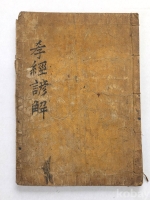 孝經諺解